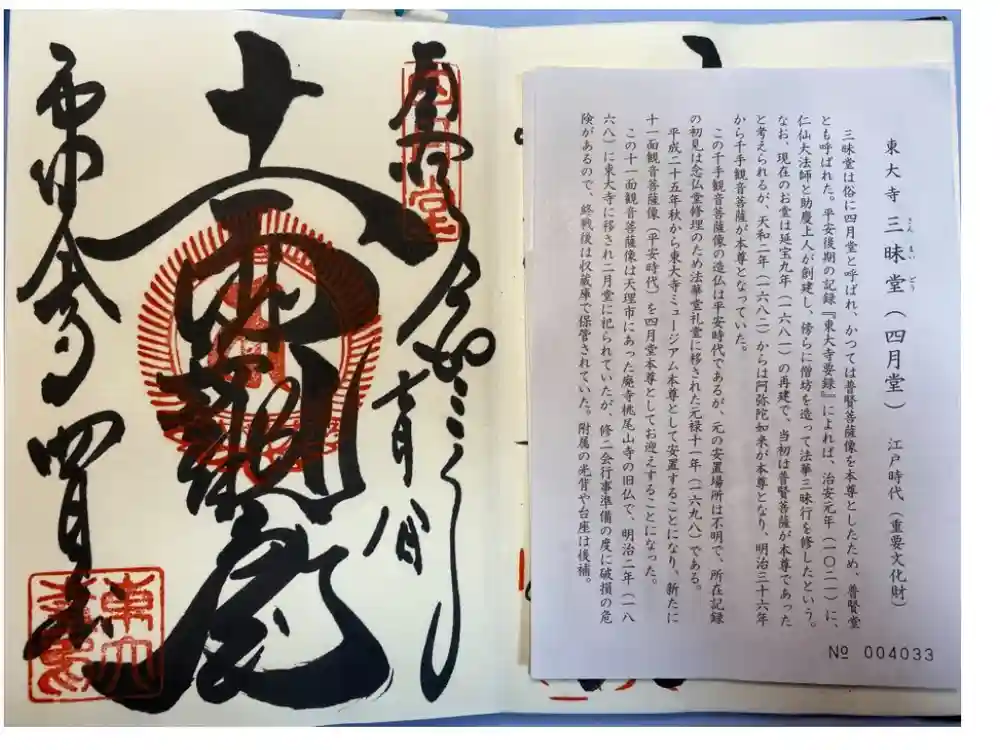 東大寺 三昧堂（四月堂） 江戸時代（重要文化財）
さん まい どう
三昧堂は俗に四月堂と呼ばれ、かつては普賢菩薩像を本尊としたため、普賢堂
とも呼ばれた。平安後期の記録『東大寺要録』によれば、治安元年（一〇二一）に、
仁仙大法師と助慶上人が創建し、傍らに僧坊を造って法華三昧行を修したという。
なお、現在のお堂は延宝九年（一六八一）の再建で、当初は普賢菩薩が本尊であった
と考えられるが、天和二年（一六八二）からは阿弥陀如来が本尊となり、明治三十六年
から千手観音菩薩が本尊となっていた。
この千手観音菩薩像の造仏は平安時代であるが、元の安置場所は不明で、所在記録
の初見は念仏堂修理のため法華堂礼堂に移された元禄十一年（一六九八）である。
平成二十五年秋から東大寺ミュージアム本尊として安置することになり、新たに
十一面観音菩薩像（平安時代）を四月堂本尊としてお迎えすることになった。
この十一面観音菩薩像は天理市にあった廃寺桃尾山寺の旧仏で、明治二年（一八
六八）に東大寺に移され二月堂に祀られていたが、修二会行事準備の度に破損の危
険があるので、終戦後は収蔵庫で保管されていた。附属の光背や台座は後補。
№ 004033
奉拝
十一面
東大寺 四月堂